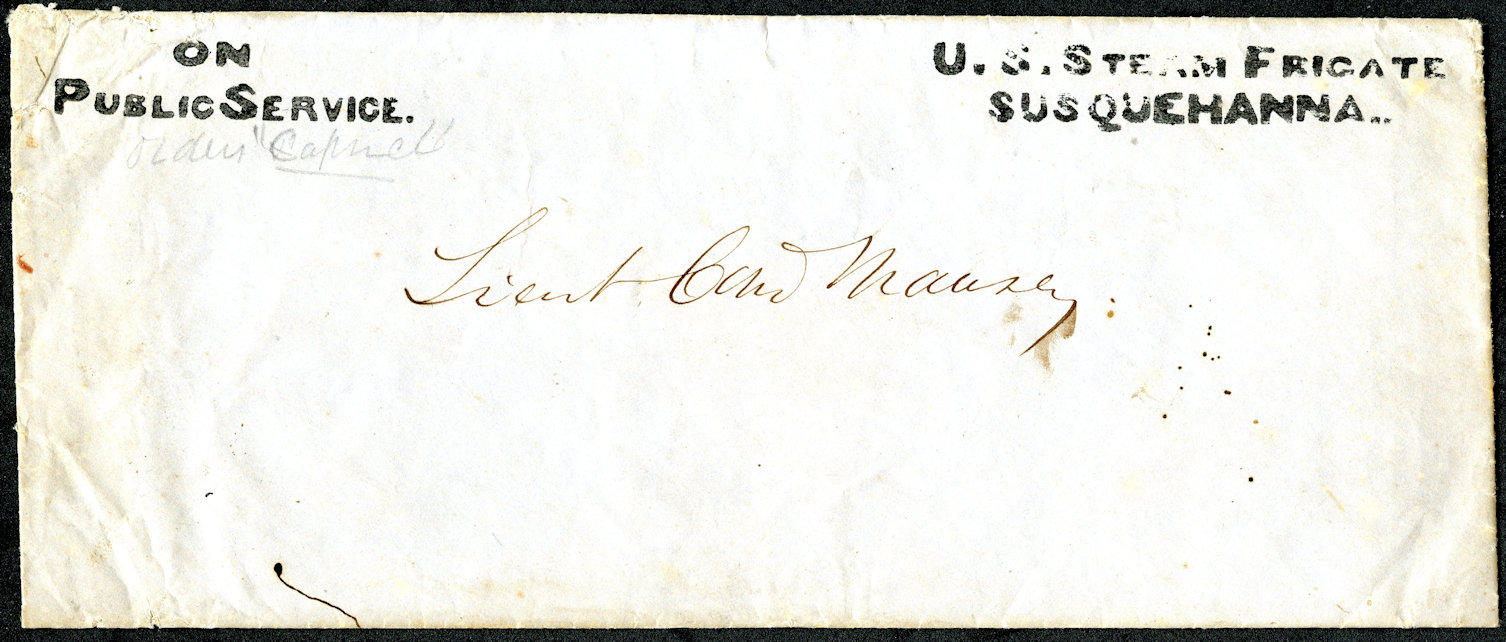 ON
PUBLIC SERVICE.
U. S. STEAM FRIGATE
SUSQUEHANNA..
orders
Lieut. Com Maury.